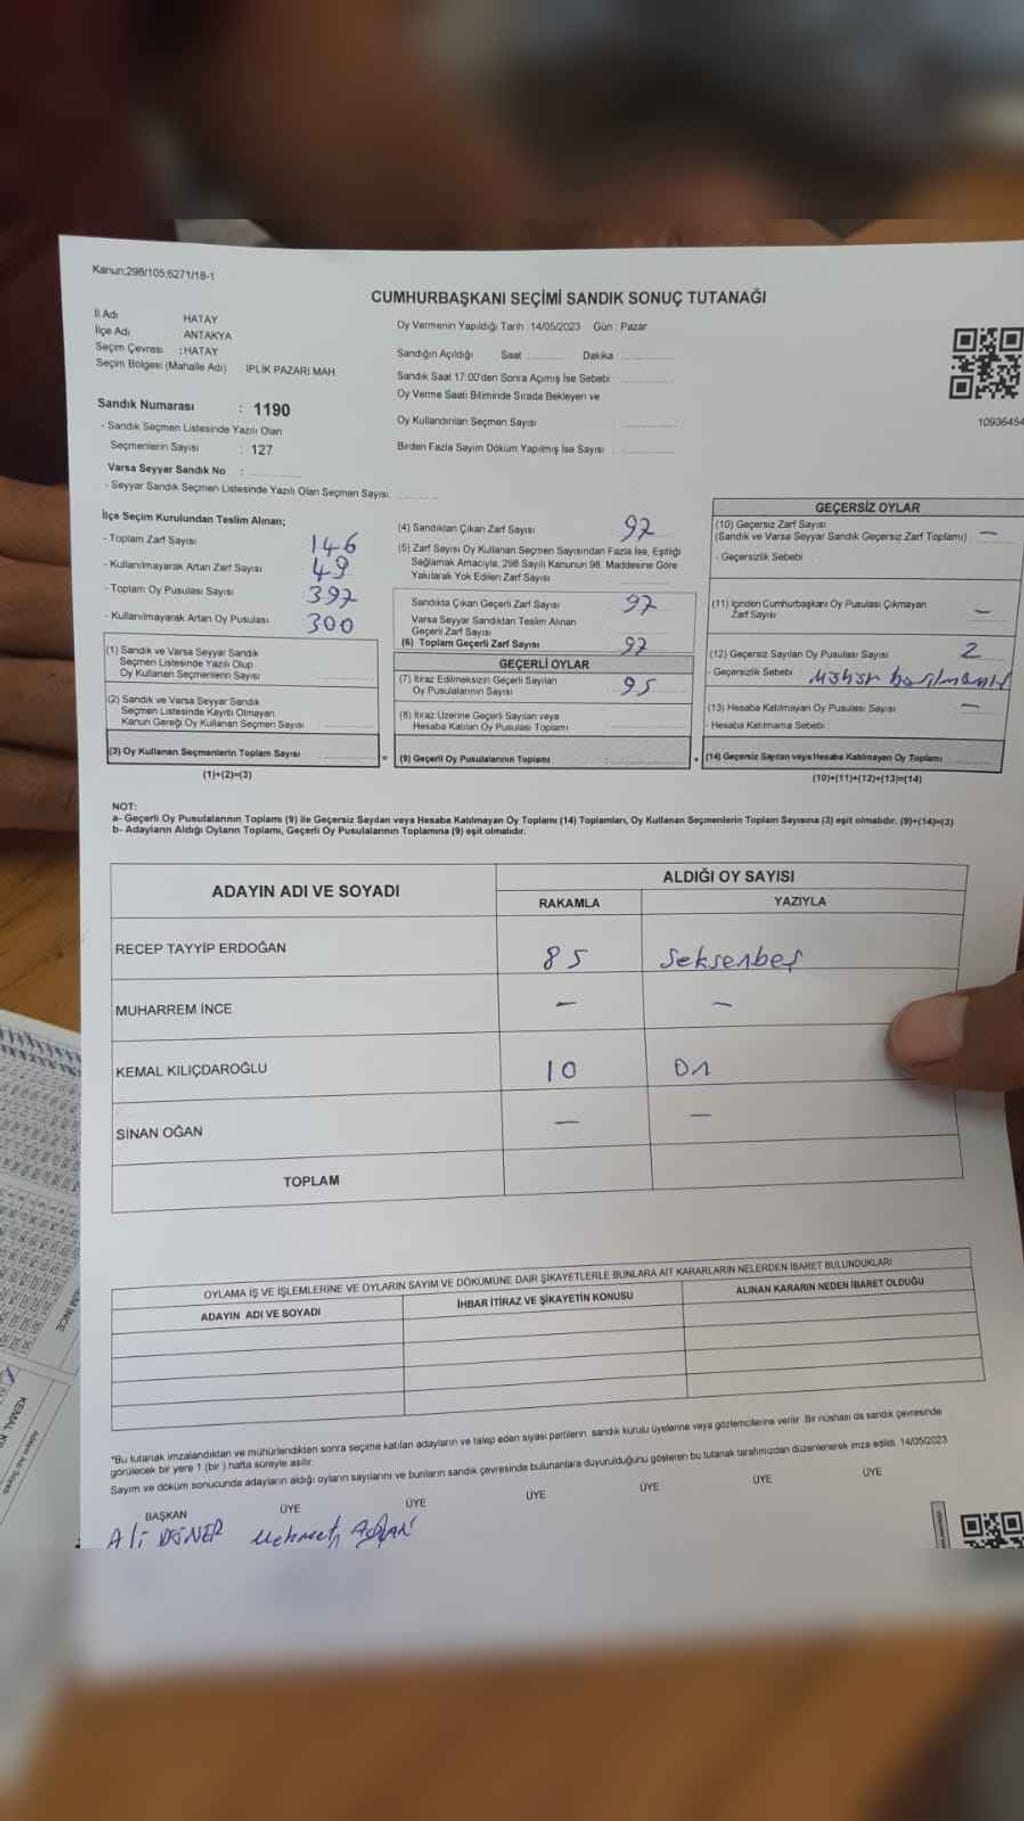 Kanun;298/105;6271/18-1
CUMHURBAŞKANI SEÇİMİ SANDIK SONUÇ TUTANAĞI
İl Adı HATAY
İlçe Adı ANTAKYA
Seçim Çevresi : HATAY
Seçim Bölgesi (Mahalle Adı) İPLİK PAZARI MAH.
Sandık Numarası : 1190
- Sandık Seçmen Listesinde Yazılı Olan
Seçmenlerin Sayısı : 127
Varsa Seyyar Sandık No :
- Seyyar Sandık Seçmen Listesinde Yazılı Olan Seçmen Sayısı
Oy Vermenin Yapıldığı Tarih : 14/05/2023 Gün : Pazar
Sandığın Açıldığı Saat Dakika :
Sandık Saat 17:00'den Sonra Açımış İse Sebebi
Oy Verme Saati Bitiminde Sırada Bekleyen ve
Oy Kullandırılan Seçmen Sayısı
Birden Fazla Sayım Döküm Yapılmış İse Sayısı :
10936454
İlçe Seçim Kurulundan Teslim Alınan;
- Toplam Zarf Sayısı 146
- Kullanılmayarak Artan Zarf Sayısı 49
- Toplam Oy Pusulası Sayısı 397
- Kullanılmayarak Artan Oy Pusulası 300
(1) Sandık ve Varsa Seyyar Sandık
Seçmen Listesinde Yazılı Olup
Oy Kullanan Seçmenlerin Sayısı
(2) Sandık ve Varsa Seyyar Sandık
Seçmen Listesinde Kayıtlı Olmayan
Kanun Gereği Oy Kullanan Seçmen Sayısı
(3) Oy Kullanan Seçmenlerin Toplam Sayısı
(1)+(2)=(3)
(4) Sandıktan Çıkan Zarf Sayısı 97
(5) Zarf Sayısı Oy Kullanan Seçmen Sayısından Fazla İse, Eşitliği
Sağlamak Amacıyla, 298 Sayılı Kanunun 98. Maddesine Göre
Yakılarak Yok Edilen Zarf Sayısı
Sandıkta Çıkan Geçerli Zarf Sayısı 97
Varsa Seyyar Sandıktan Teslim Alınan
Geçerli Zarf Sayısı
(6) Toplam Geçerli Zarf Sayısı 97
GEÇERLİ OYLAR
(7) İtiraz Edilmeksizin Geçerli Sayılan
Oy Pusulalarının Sayısı 95
(8) İtiraz Üzerine Geçerli Sayılan veya
Hesaba Katılan Oy Pusulası Toplamı
(9) Geçerli Oy Pusulalarının Toplamı :
GEÇERSİZ OYLAR
(10) Geçersiz Zarf Sayısı
(Sandık ve Varsa Seyyar Sandık Geçersiz Zarf Toplamı) —
- Geçersizlik Sebebi
(11) İçinden Cumhurbaşkanı Oy Pusulası Çıkmayan
Zarf Sayısı —
(12) Geçersiz Sayılan Oy Pusulası Sayısı 2
- Geçersizlik Sebebi
(13) Hesaba Katılmayan Oy Pusulası Sayısı —
- Hesaba Katılmama Sebebi :
(14) Geçersiz Sayılan veya Hesaba Katılmayan Oy Toplamı
(10)+(11)+(12)+(13)=(14)
NOT:
a- Geçerli Oy Pusulalarının Toplamı (9) ile Geçersiz Sayılan veya Hesaba Katılmayan Oy Toplamı (14) Toplamları, Oy Kullanan Seçmenlerin Toplam Sayısına (3) eşit olmalıdır. (9)+(14)=(3)
b- Adayların Aldığı Oyların Toplamı, Geçerli Oy Pusulalarının Toplamına (9) eşit olmalıdır.
ADAYIN ADI VE SOYADI ALDIĞI OY SAYISI
RAKAMLA YAZIYLA
RECEP TAYYİP ERDOĞAN 85 Seksenbeş
MUHARREM İNCE — —
KEMAL KILIÇDAROĞLU 10 On
SİNAN OĞAN — —
TOPLAM
OYLAMA İŞ VE İŞLEMLERİNE VE OYLARIN SAYIM VE DÖKÜMÜNE DAİR ŞİKAYETLERLE BUNLARA AİT KARARLARIN NELERDEN İBARET BULUNDUKLARI
ADAYIN ADI VE SOYADI İHBAR İTİRAZ VE ŞİKAYETİN KONUSU ALINAN KARARIN NEDEN İBARET OLDUĞU
*Bu tutanak imzalandıktan ve mühürlendikten sonra seçime katılan adayların ve talep eden siyasi partilerin sandık kurulu üyelerine veya gözlemcilerine verilir. Bir nüshası da sandık çevresinde
görülecek bir yere 1 (bir) hafta süreyle asılır.
Sayım ve döküm sonucunda adayların aldığı oyların sayılarını ve bunların sandık çevresinde bulunanlara duyurulduğunu gösteren bu tutanak tarafımızdan düzenlenerek imza edildi. 14/05/2023
BAŞKAN ÜYE ÜYE ÜYE ÜYE ÜYE ÜYE
Ali DÖNER Mehmet